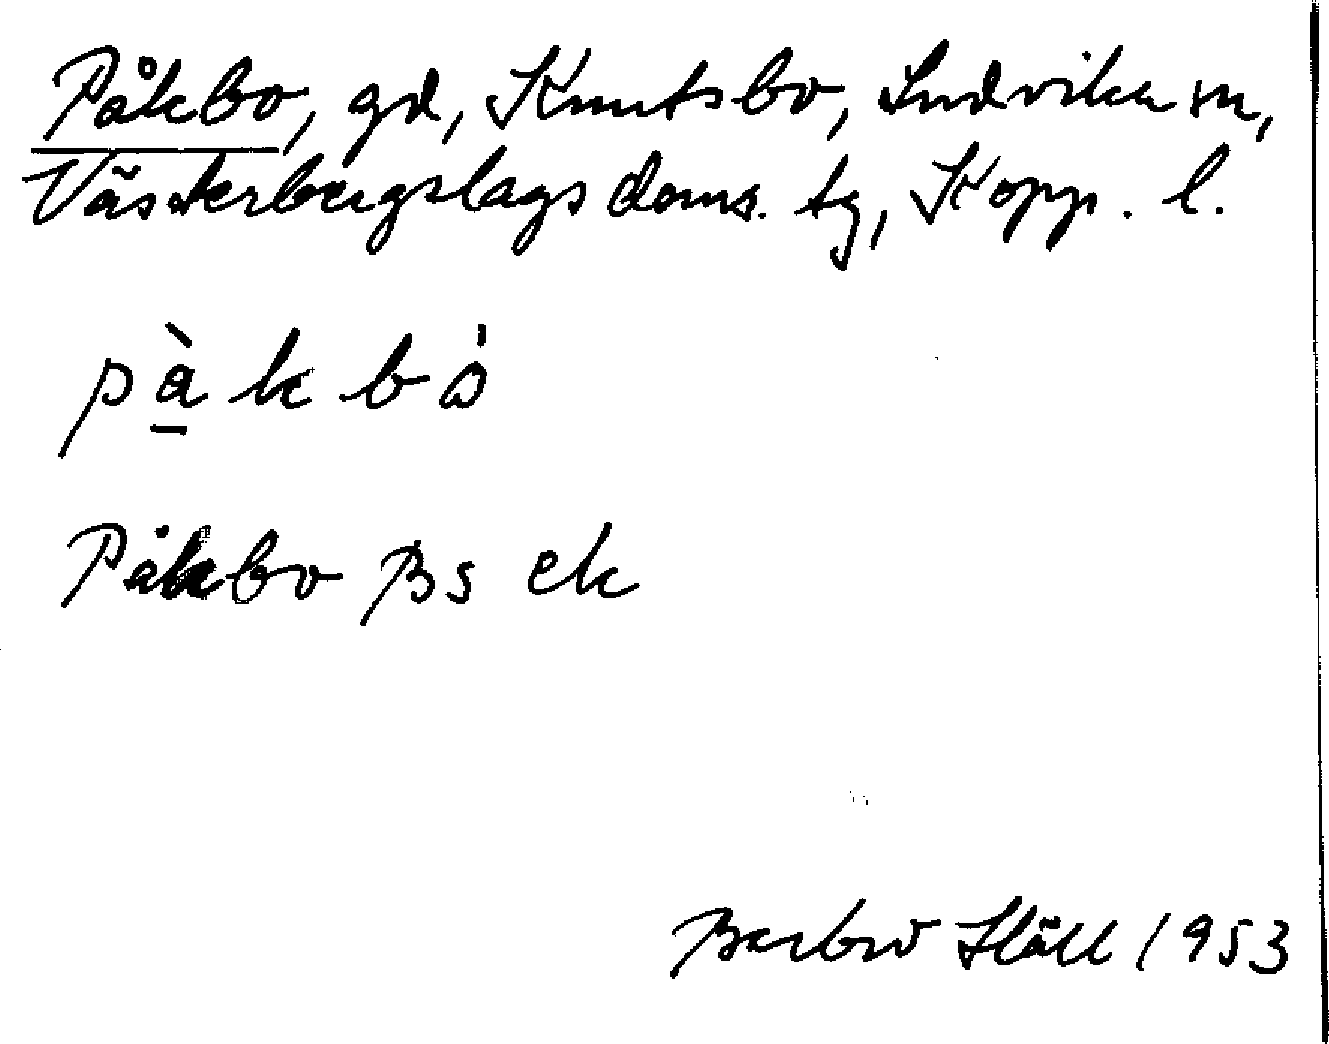 Påkbo, gd, Knutsbo, Ludvika sn,
Västerbergslags doms. tg, Kopp. l.
pàkbò
Påkbo Bs ek
Barbro Ståll 1953